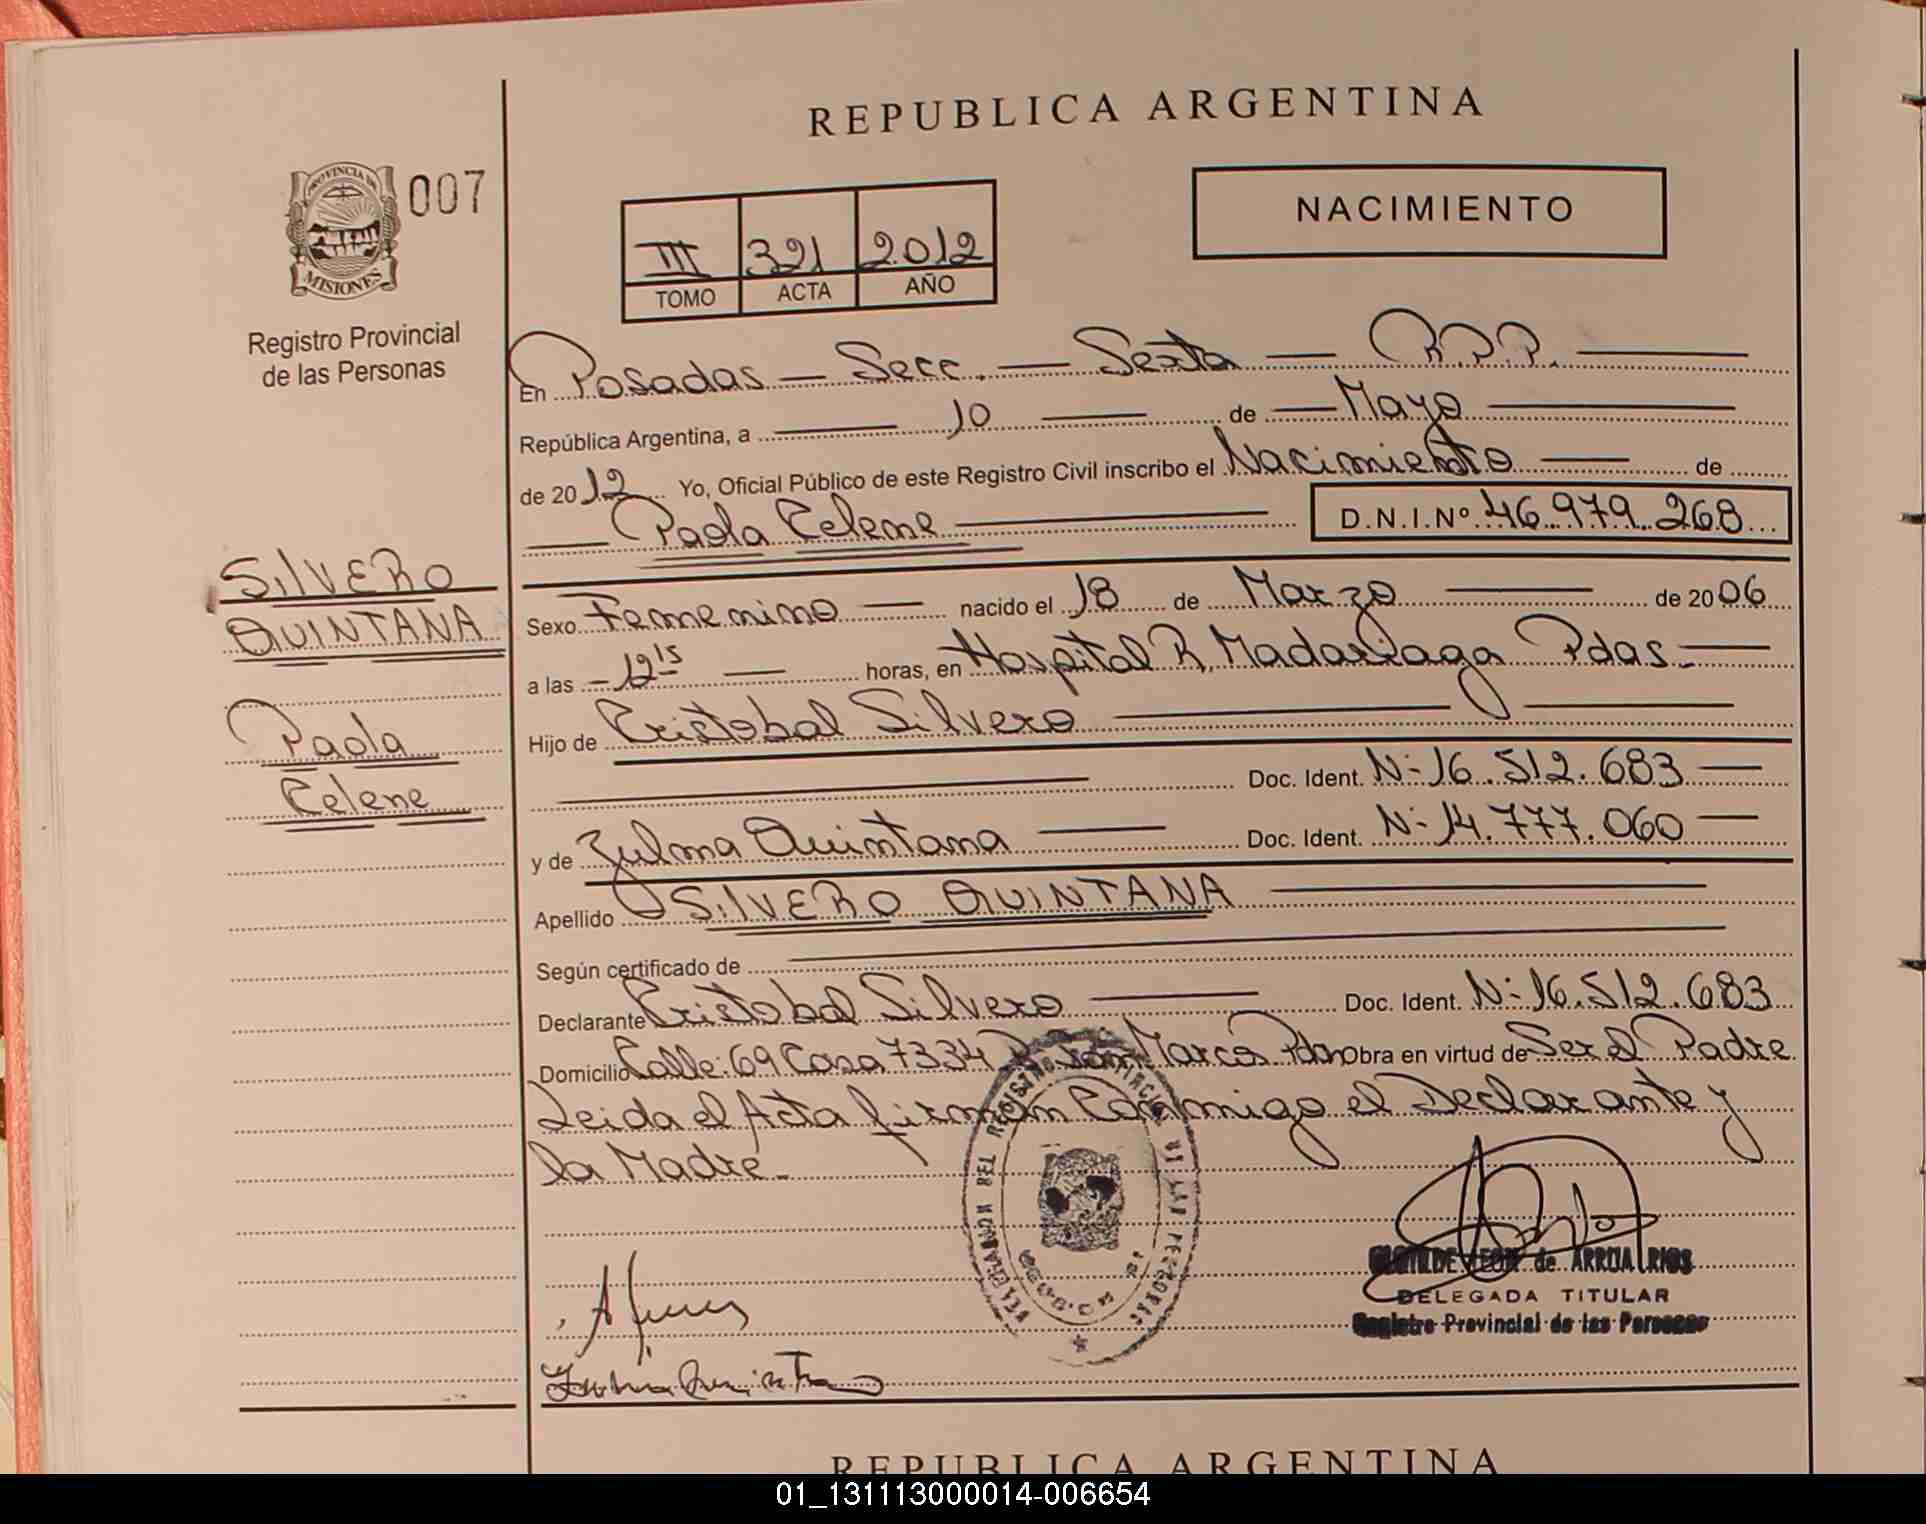 REPUBLICA ARGENTINA
PROVINCIA DE
MISIONES
007
Registro Provincial
de las Personas
III 321 2012
TOMO ACTA AÑO
NACIMIENTO
En Posadas - Secc. - Sexta - R.P.P.
República Argentina, a 10 de Mayo
de 2012 Yo, Oficial Público de este Registro Civil inscribo el Nacimiento de
Paola Celene D.N.I.Nº 46.979.268
SILVERO
QUINTANA
Paola
Celene
Sexo Femenino nacido el 18 de Marzo de 2006
a las - 12 15 horas, en Hospital R. Madariaga Pdas -
Hijo de Cristobal Silvero
Doc. Ident. N- 16.512.683
y de Zulma Quintana Doc. Ident. N- 14.777.060
Apellido SILVERO QUINTANA
Según certificado de
Declarante Cristobal Silvero Doc. Ident. N- 16.512.683
Domicilio Calle: 69 Casa 7334 San Marcos Pdas Obra en virtud de Ser el Padre
Leida el Acta firman Conmigo el Declarante y
la Madre -
DELEGACION DEL REGISTRO PROVINCIAL DE LAS PERSONAS
CLOTILDE LEON de ARRUA RIOS
DELEGADA TITULAR
Registro Provincial de las Personas
Zulma Quintana
REPUBLICA ARGENTINA
01_131113000014-006654